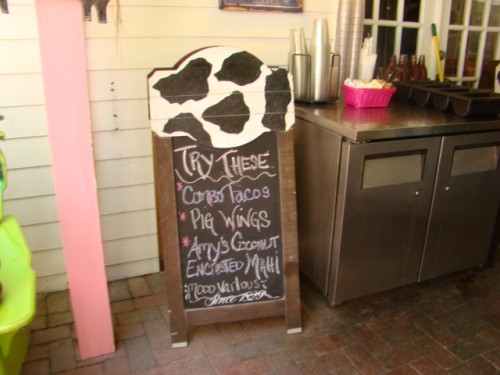 TRY THESE
* COMBO TACOS
* PIG WINGS
* AMY'S COCONUT
ENCRUSTED MAHI
Since